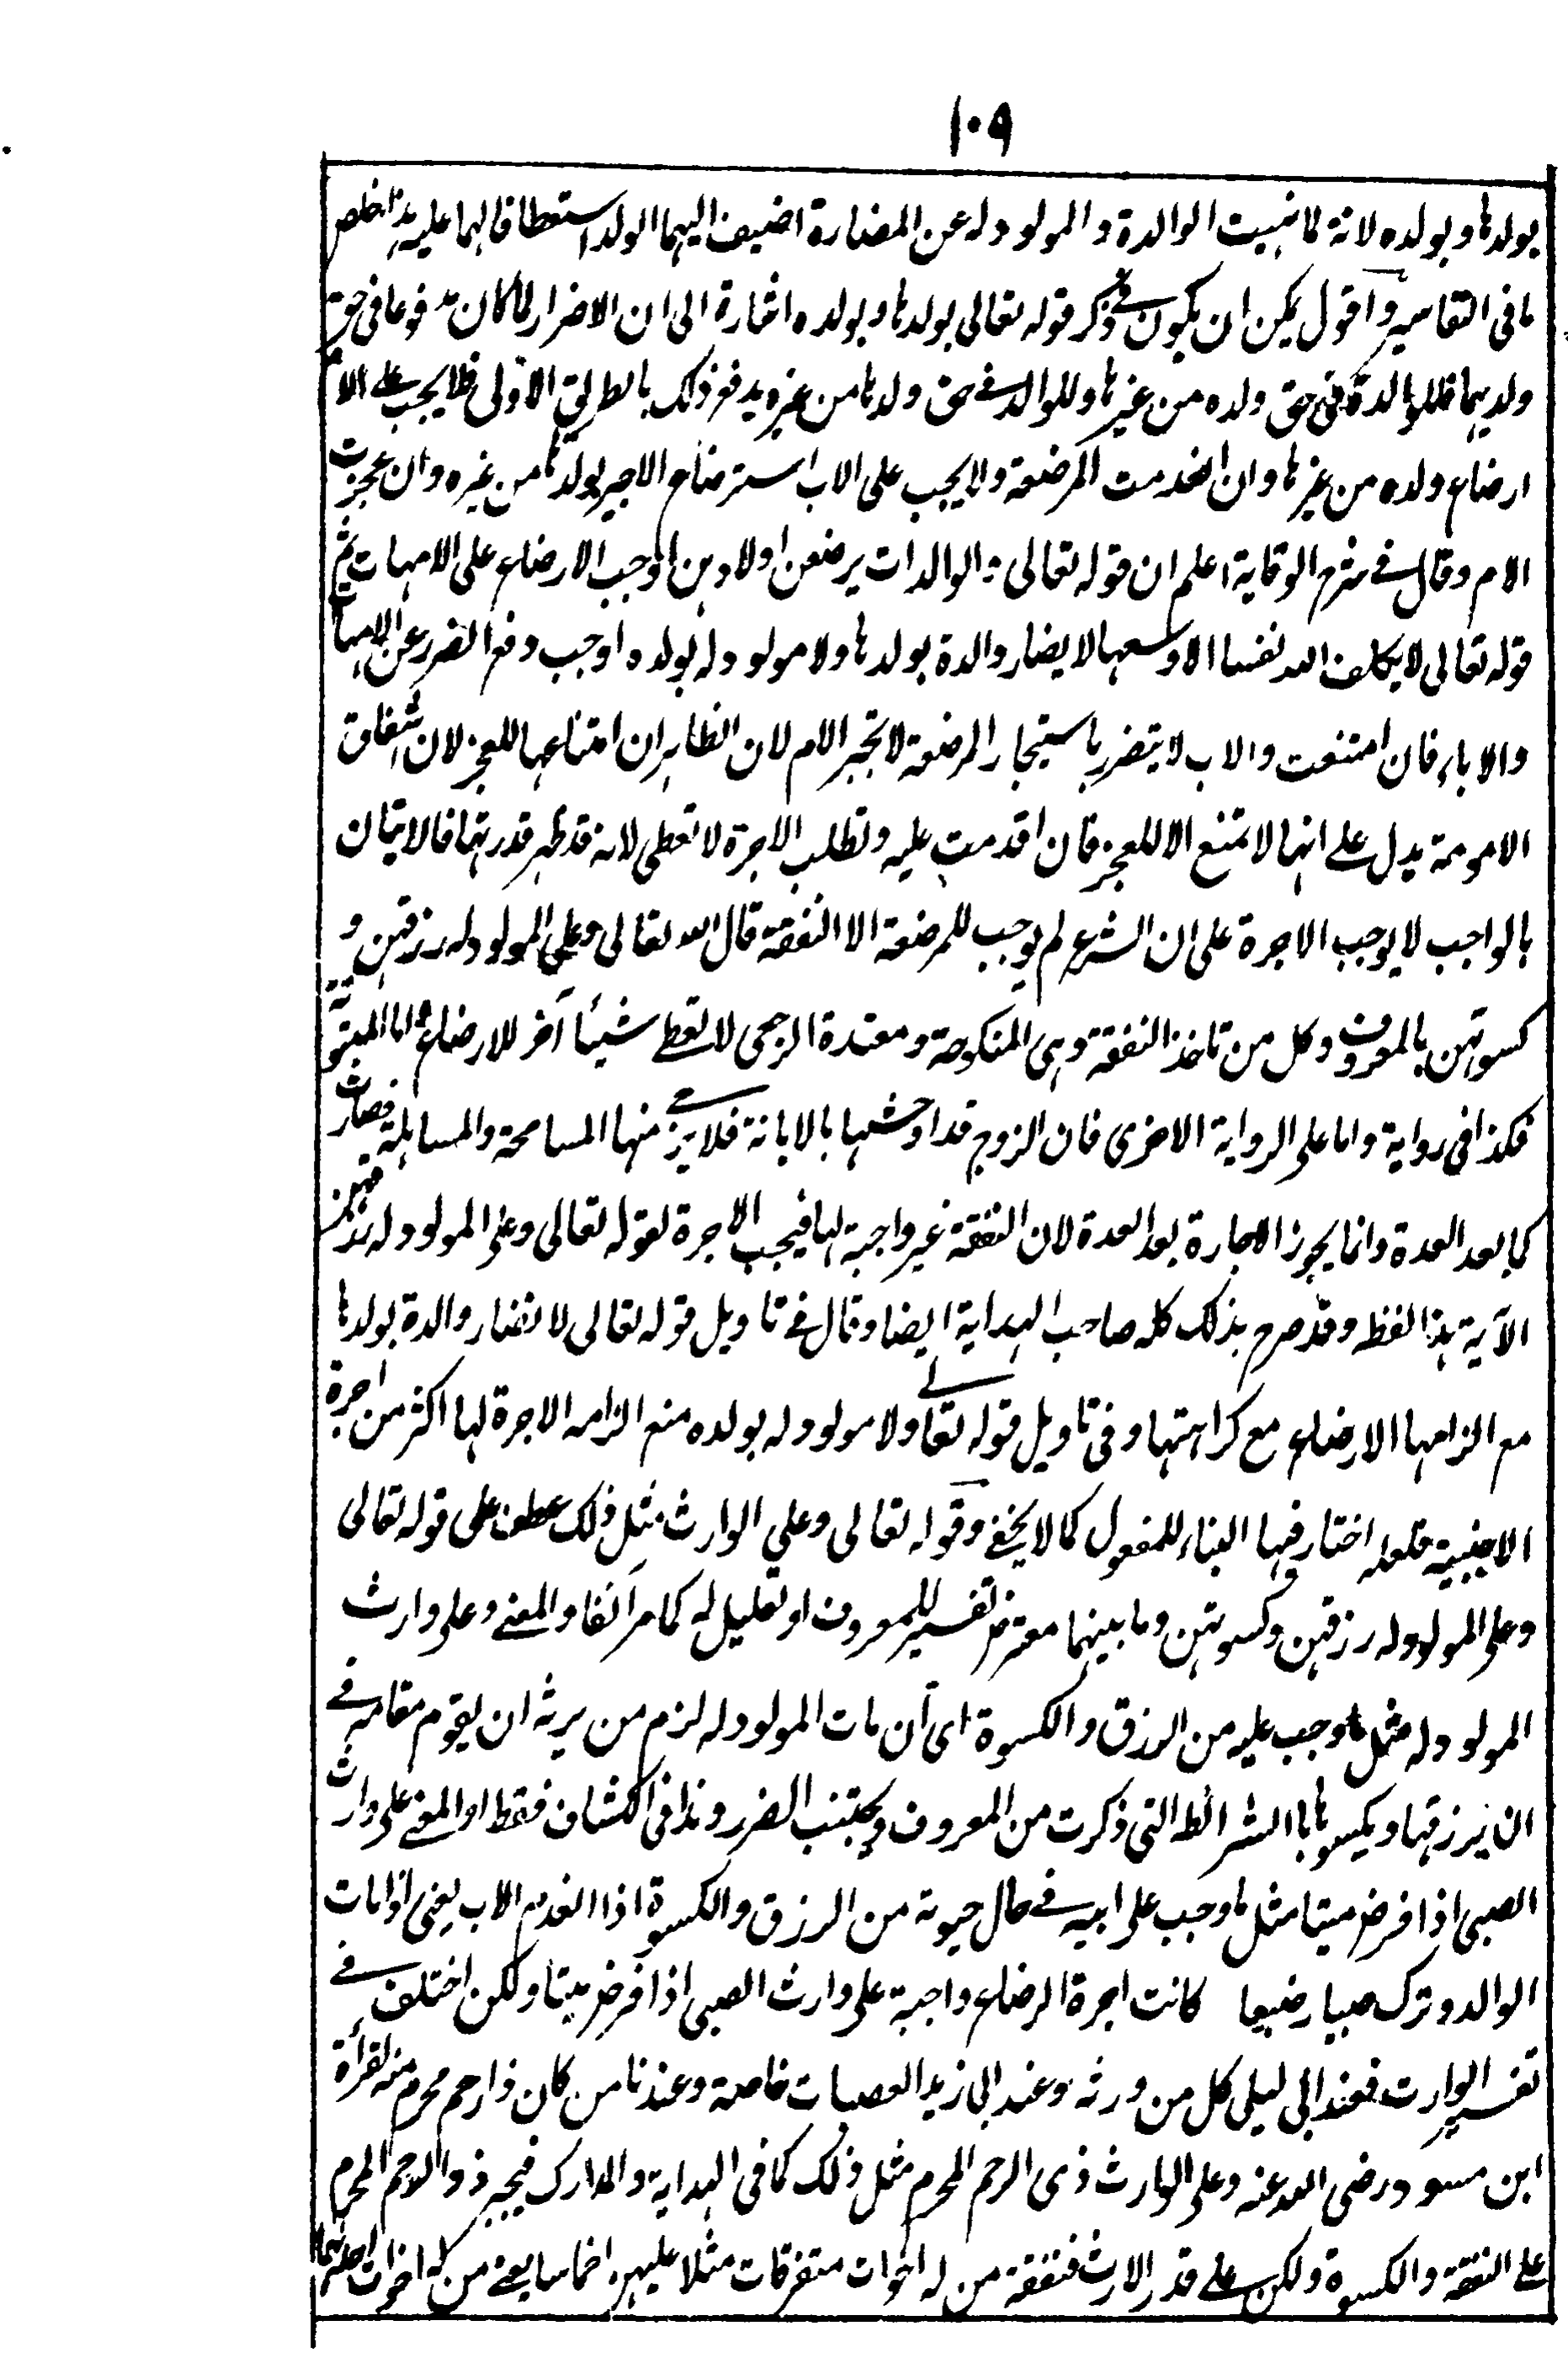 ١٠٩
بولدها وبولده لانه لما نهيت الوالدة والمولود له عن المضارة اضيف اليهما الولد استعطافا لهما عليه هذا خلص
ما فى التفاسير واقول يمكن ان يكون فى ذكر قوله تعالى بولدها وبولده اشارة الى ان الاضرار لما كان مدفوعا فى حق
ولديهما فللوالدة فى حق ولده من غيرها وللوالد فى حق ولدها من غيره يدفع ذلك بالطريق الاولى فلا يجب على الام
ارضاع ولده من غيرها وان انعدمت المرضعة ولا يجب على الاب استرضاع الاجير لولدها من غيره وان عجزت
الام وقال فى شرح الوقاية اعلم ان قوله تعالى والوالدات يرضعن اولادهن اوجب الارضاع على الامهات ثم
قوله تعالى لا يكلف الله نفسا الا وسعها لا يضار والدة بولدها ولا مولود له بولده اوجب دفع الضرر عن الامهات
والاباء فان امتنعت والاب لا يتضرر باستيجار المرضعة لا تجبر الام لان الظاهر ان امتناعها للعجز لان اشفاق
الامومة يدل على انها لا تمتنع الا للعجز فان اقدمت عليه وتطلب الاجرة لا تعطى لانه قد ظهر قدرتها فالاتيان
بالواجب لا يوجب الاجرة على ان الشرع لم يوجب للمرضعة الا النفقة قال الله تعالى وعلى المولود له رزقهن و
كسوتهن بالمعروف وكل من تاخذ النفقة وهى المنكوحة ومعتدة الرجعى لا تعطى شيئا آخر للارضاع اما المبتوتة
فكذا فى رواية واما على الرواية الاخرى فان الزوج قد اوحشها بالابانة فلا يرى منها المسامحة والمساهلة فصارت
كما بعد العدة وانما يجوز الاجارة بعد العدة لان النفقة غير واجبة لها فيجب الاجرة لقوله تعالى وعلى المولود له رزقهن
الآية هذا لفظه وقد صرح بذلك كله صاحب الهداية ايضا وقال فى تاويل قوله تعالى لا تضار والدة بولدها
مع الزامها الارضاع مع كراهتها وفى تاويل قوله تعالى ولا مولود له بولده منع الزامه الاجرة لها اكثر من اجرة
الاجنبية فلعله اختار فيها البناء للمفعول كما لا يخفى وقوله تعالى وعلى الوارث مثل ذلك عطف على قوله تعالى
وعلى المولود له رزقهن وكسوتهن وما بينهما معترض تفسير للمعروف او تعليل له كما مر آنفا والمعنى وعلى وارث
المولود له مثل ما وجب عليه من الرزق والكسوة اى ان مات المولود له لزم من يرثه ان يقوم مقامه فى
ان يرزقها ويكسوها بالشرائط التى ذكرت من المعروف ويجتنب الضرر وهذا فى الكشاف فقط او المعنى على وارث
الصبى اذا فرض ميتا مثل ما وجب على ابيه فى حال حيوته من الرزق والكسوة اذا انعدم الاب يعنى اذا مات
الوالد وترك صبيا رضيعا كانت اجرة الرضاع واجبة على وارث الصبى اذا فرض ميتا ولكن اختلف فى
تفسير الوارث فعند ابى ليلى كل من ورثه وعند ابى زيد العصبات خاصة وعندنا من كان ذا رحم محرم منه لقرأة
ابن مسعود رضى الله عنه وعلى الوارث ذى الرحم المحرم مثل ذلك كما فى الهداية والمدارك فيجبر ذو الرحم المحرم
على النفقة والكسوة ولكن على قدر الارث فنفقة من له اخوات متفرقات مثلا عليهن اخماسا يعنى من له اخوات